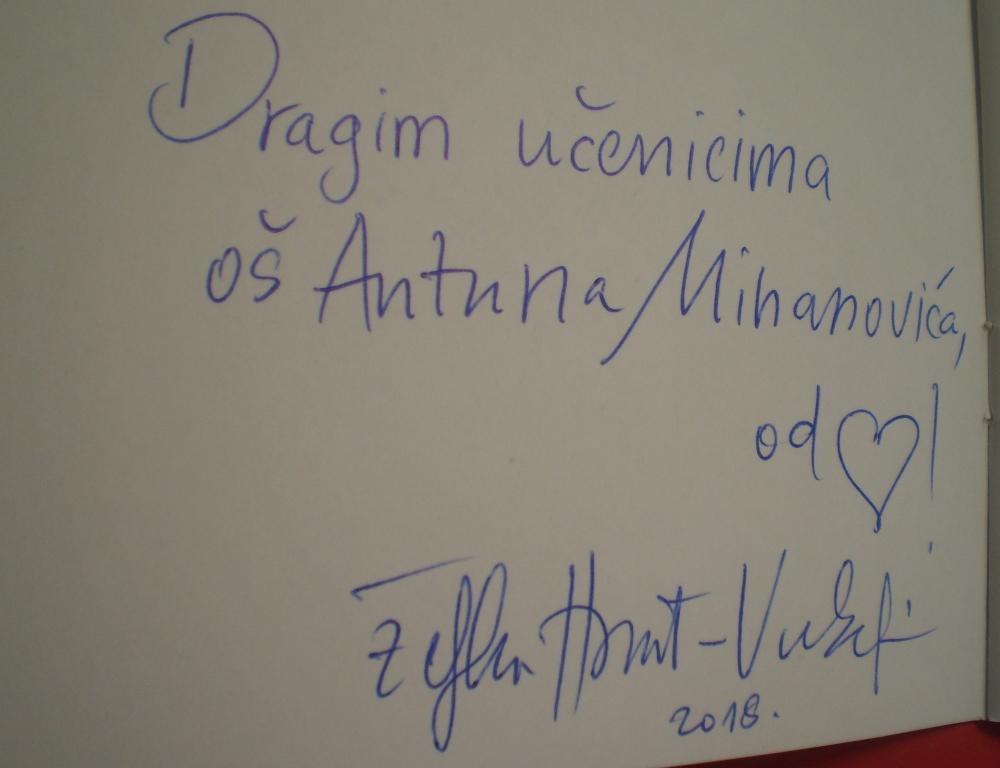 Dragim učenicima
oš Antuna Mihanovića,
od ♡!
Željka Horvat-Vukelja
2018.